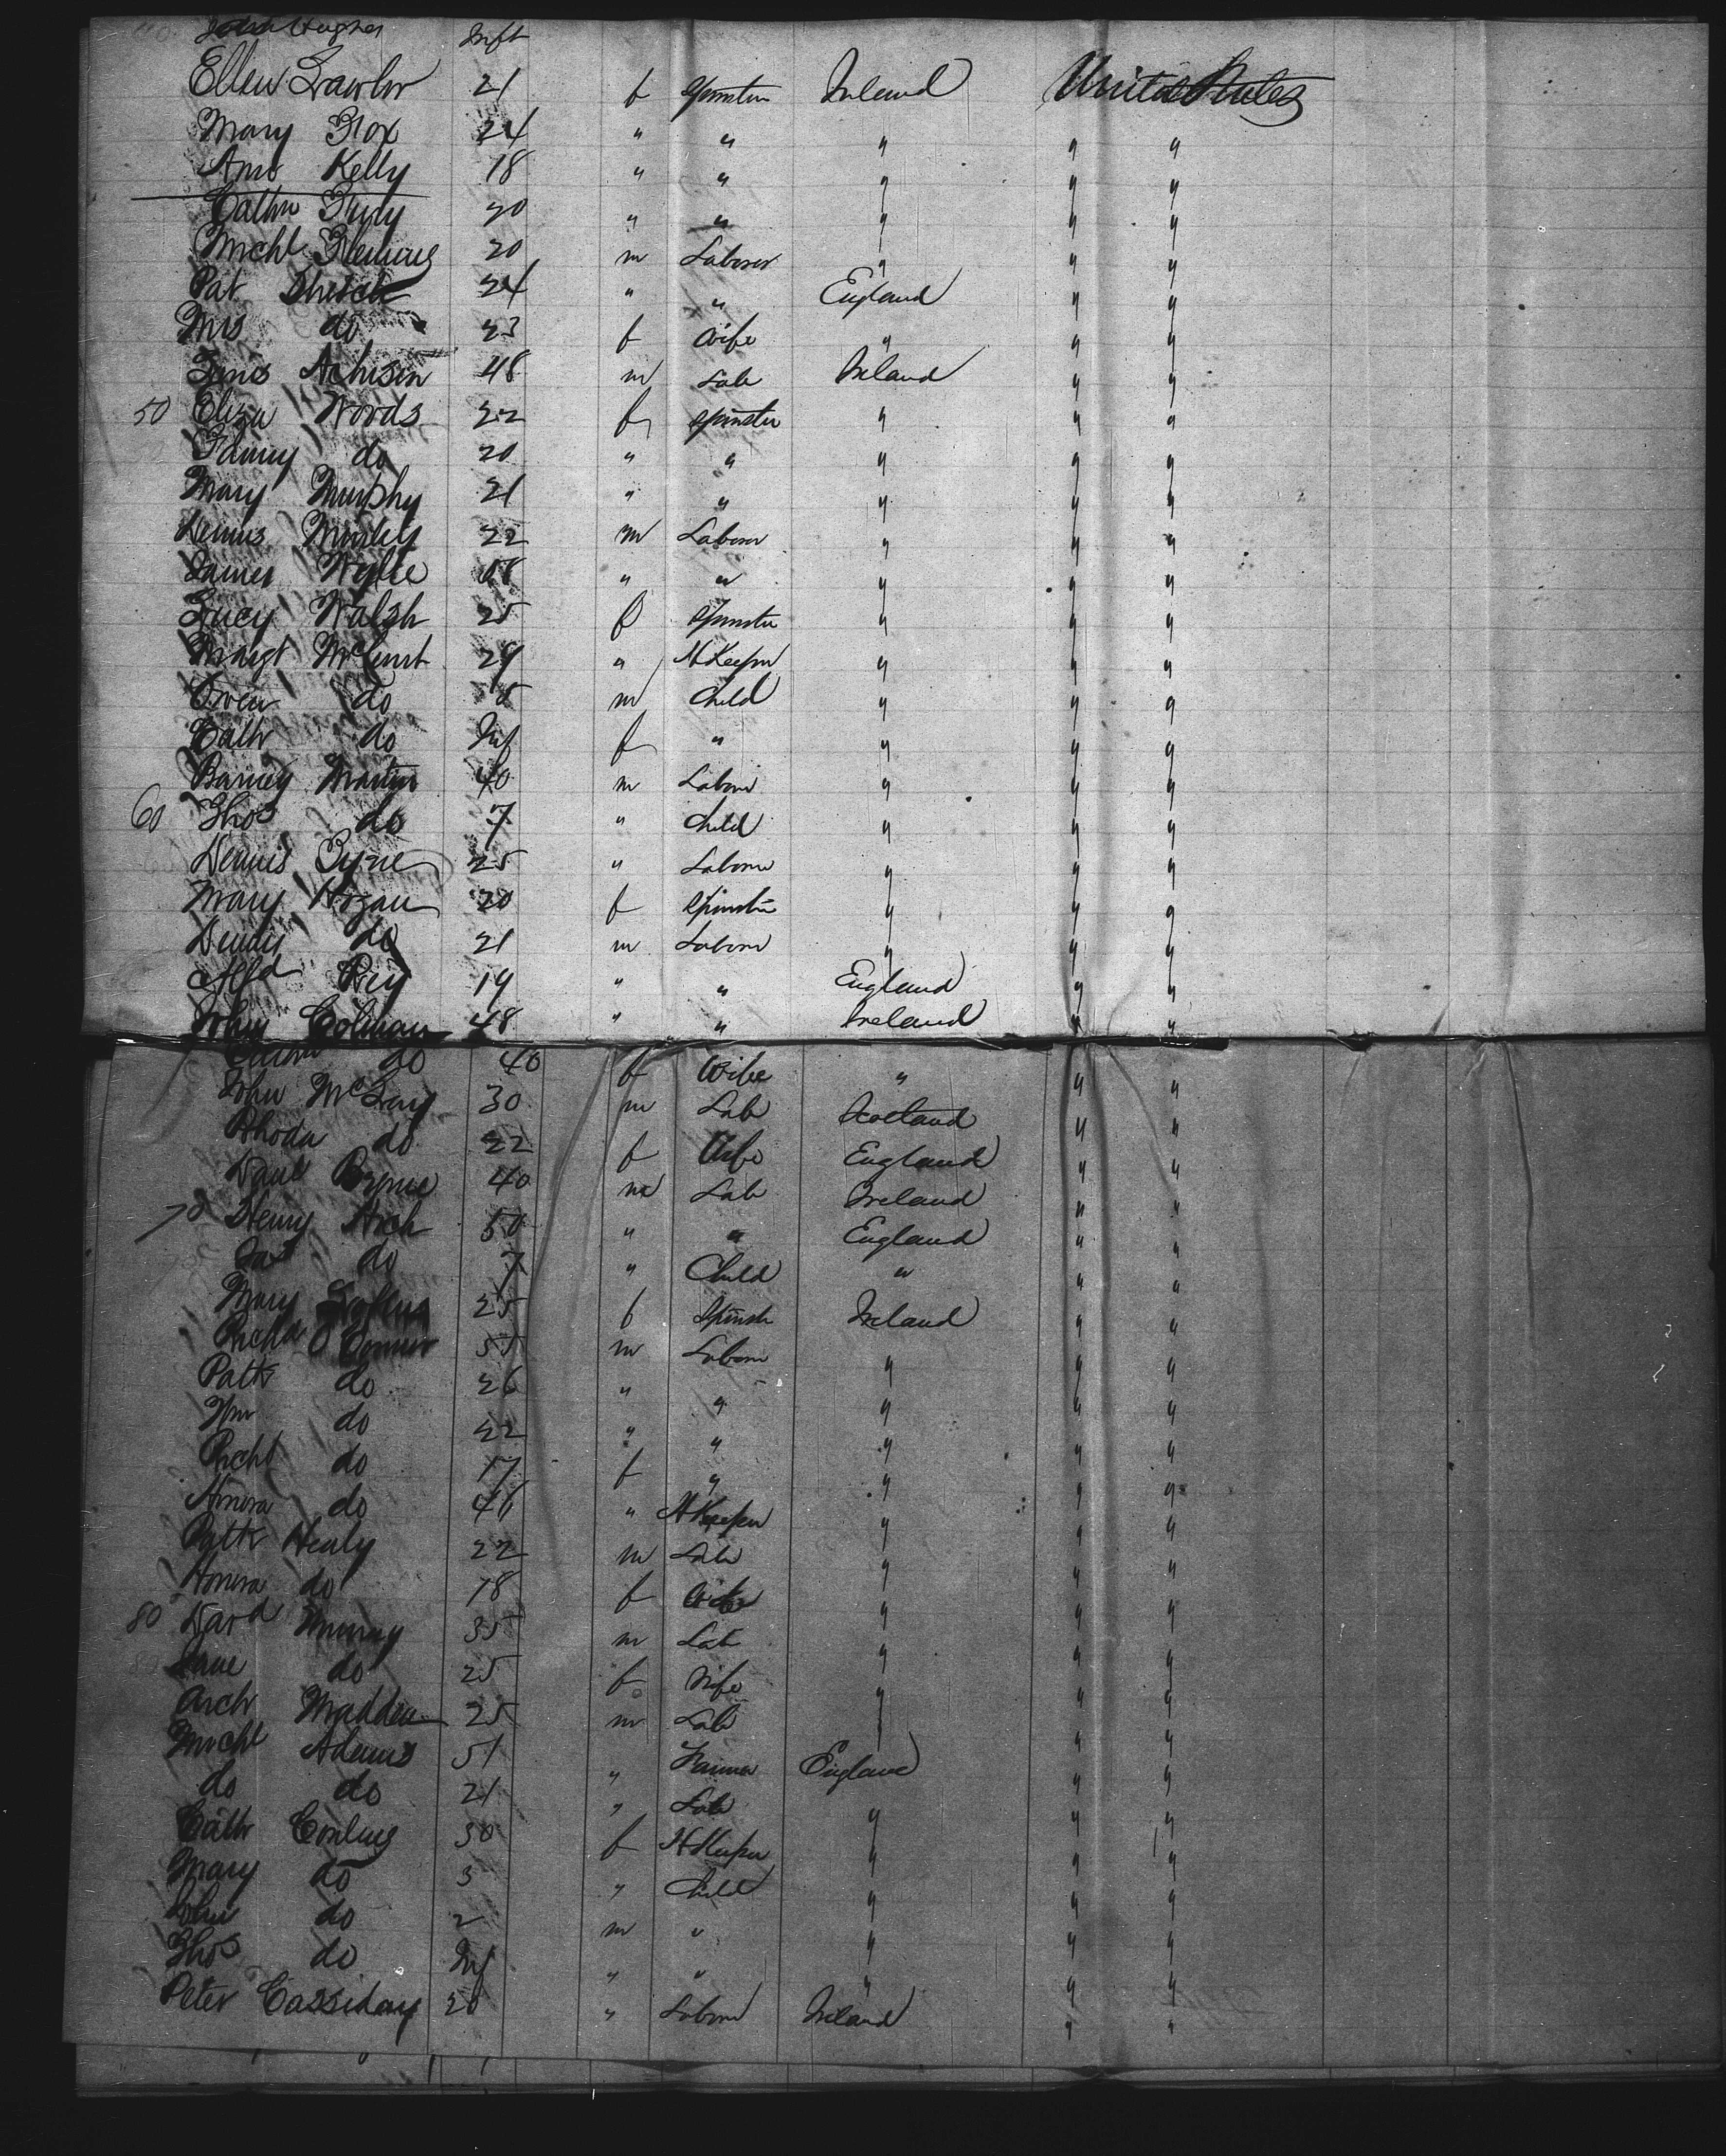 John Hughes Inft
Ellen Lawlor 21 f Spinster Ireland United States
Mary Fox 24 " " " " "
Ann Kelly 18 " " " " "
Cathn 20 " " " " "
Michl Fleming 20 m Laborer " " "
Pat 24 " " England " "
Mrs do 23 f Wife " " "
Achison 48 m Lab Ireland " "
50 Eliza Woods 22 f Spinster " " "
Fanny do 20 " " " " "
Mary Murphy 21 " " " " "
Dennis 22 m Laborer " " "
James Wylie 58 " " " " "
Lucy Walsh 25 f Spinster " " "
Margt 29 " H Keeper " " "
Owen do 5 m Child " " "
Cath do Inf f " " " "
Barney Martin 40 m Laborer " " "
60 Thos do 7 " Child " " "
Dennis Tyne 25 " Laborer " " "
Mary Hogan 20 f Spinster " " "
Denny do 21 m Laborer " " "
Alfd 19 " " England " "
John Colman 48 " " Ireland " "
Cathn do 40 f Wife " " "
John 30 m Lab Scotland " "
Rhoda do 22 f Wife England " "
Danl Byrne 40 m Lab Ireland " "
70 Henry Arch 50 " " England " "
do 7 " Child " " "
Mary 25 f Spinst Ireland " "
Richd O Connor 55 m Laborer " " "
Patk do 26 " " " " "
Wm do 22 " " " " "
Richd do 17 f " " " "
Honora do 46 " H Keeper " " "
Patk Healy 22 m Lab " " "
Honora do 18 f Wife " " "
80 David Murray 35 m Lab " " "
Jane do 25 f Wife " " "
Arch Madden 25 m Lab " " "
Michl Adams 51 " Farmer England " "
do do 21 " Lab " " "
Cath Conlus 30 f H Keeper " " "
Mary do 3 " Child " " "
John do 2 m " " " "
Thos do Inf " " " " "
Peter Cassiday 20 " Laborer Ireland " "